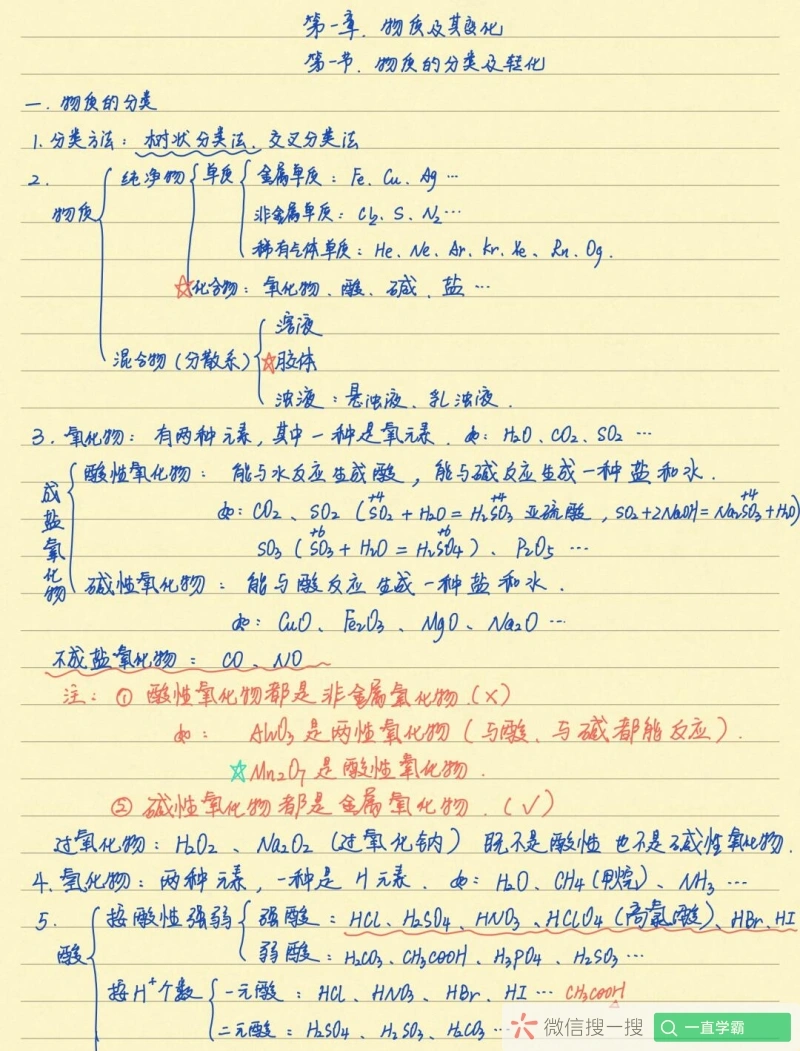 第一章. 物质及其变化
第一节. 物质的分类及转化
一. 物质的分类
1. 分类方法: 树状分类法、交叉分类法
2. 物质
纯净物
单质
金属单质: Fe、Cu、Ag …
非金属单质: Cl2、S、N2 …
稀有气体单质: He、Ne、Ar、Kr、Xe、Rn、Og.
☆化合物: 氧化物、酸、碱、盐 …
混合物(分散系)
溶液
☆胶体
浊液: 悬浊液、乳浊液.
3. 氧化物: 有两种元素, 其中一种是氧元素. 如: H2O、CO2、SO2 …
成盐氧化物
酸性氧化物: 能与水反应生成酸, 能与碱反应生成一种盐和水.
+4 +4 +4
如: CO2、SO2 (SO2 + H2O = H2SO3 亚硫酸, SO2+2NaOH=Na2SO3+H2O)
+6 +6
SO3 (SO3 + H2O = H2SO4)、P2O5 …
碱性氧化物: 能与酸反应生成一种盐和水.
如: CuO、Fe2O3、MgO、Na2O …
不成盐氧化物: CO、NO
注: ① 酸性氧化物都是非金属氧化物.(×)
如: Al2O3是两性氧化物(与酸、与碱都能反应).
☆Mn2O7是酸性氧化物.
② 碱性氧化物都是金属氧化物.(√)
过氧化物: H2O2、Na2O2 (过氧化钠) 既不是酸性也不是碱性氧化物.
4. 氢化物: 两种元素, 一种是H元素. 如: H2O、CH4(甲烷)、NH3 …
5. 酸
按酸性强弱
强酸: HCl、H2SO4、HNO3、HClO4(高氯酸)、HBr、HI
弱酸: H2CO3、CH3COOH、H3PO4、H2SO3 …
按H+个数
一元酸: HCl、HNO3、HBr、HI … CH3COOH
二元酸: H2SO4、H2SO3、H2CO3 …
微信搜一搜 一直学霸